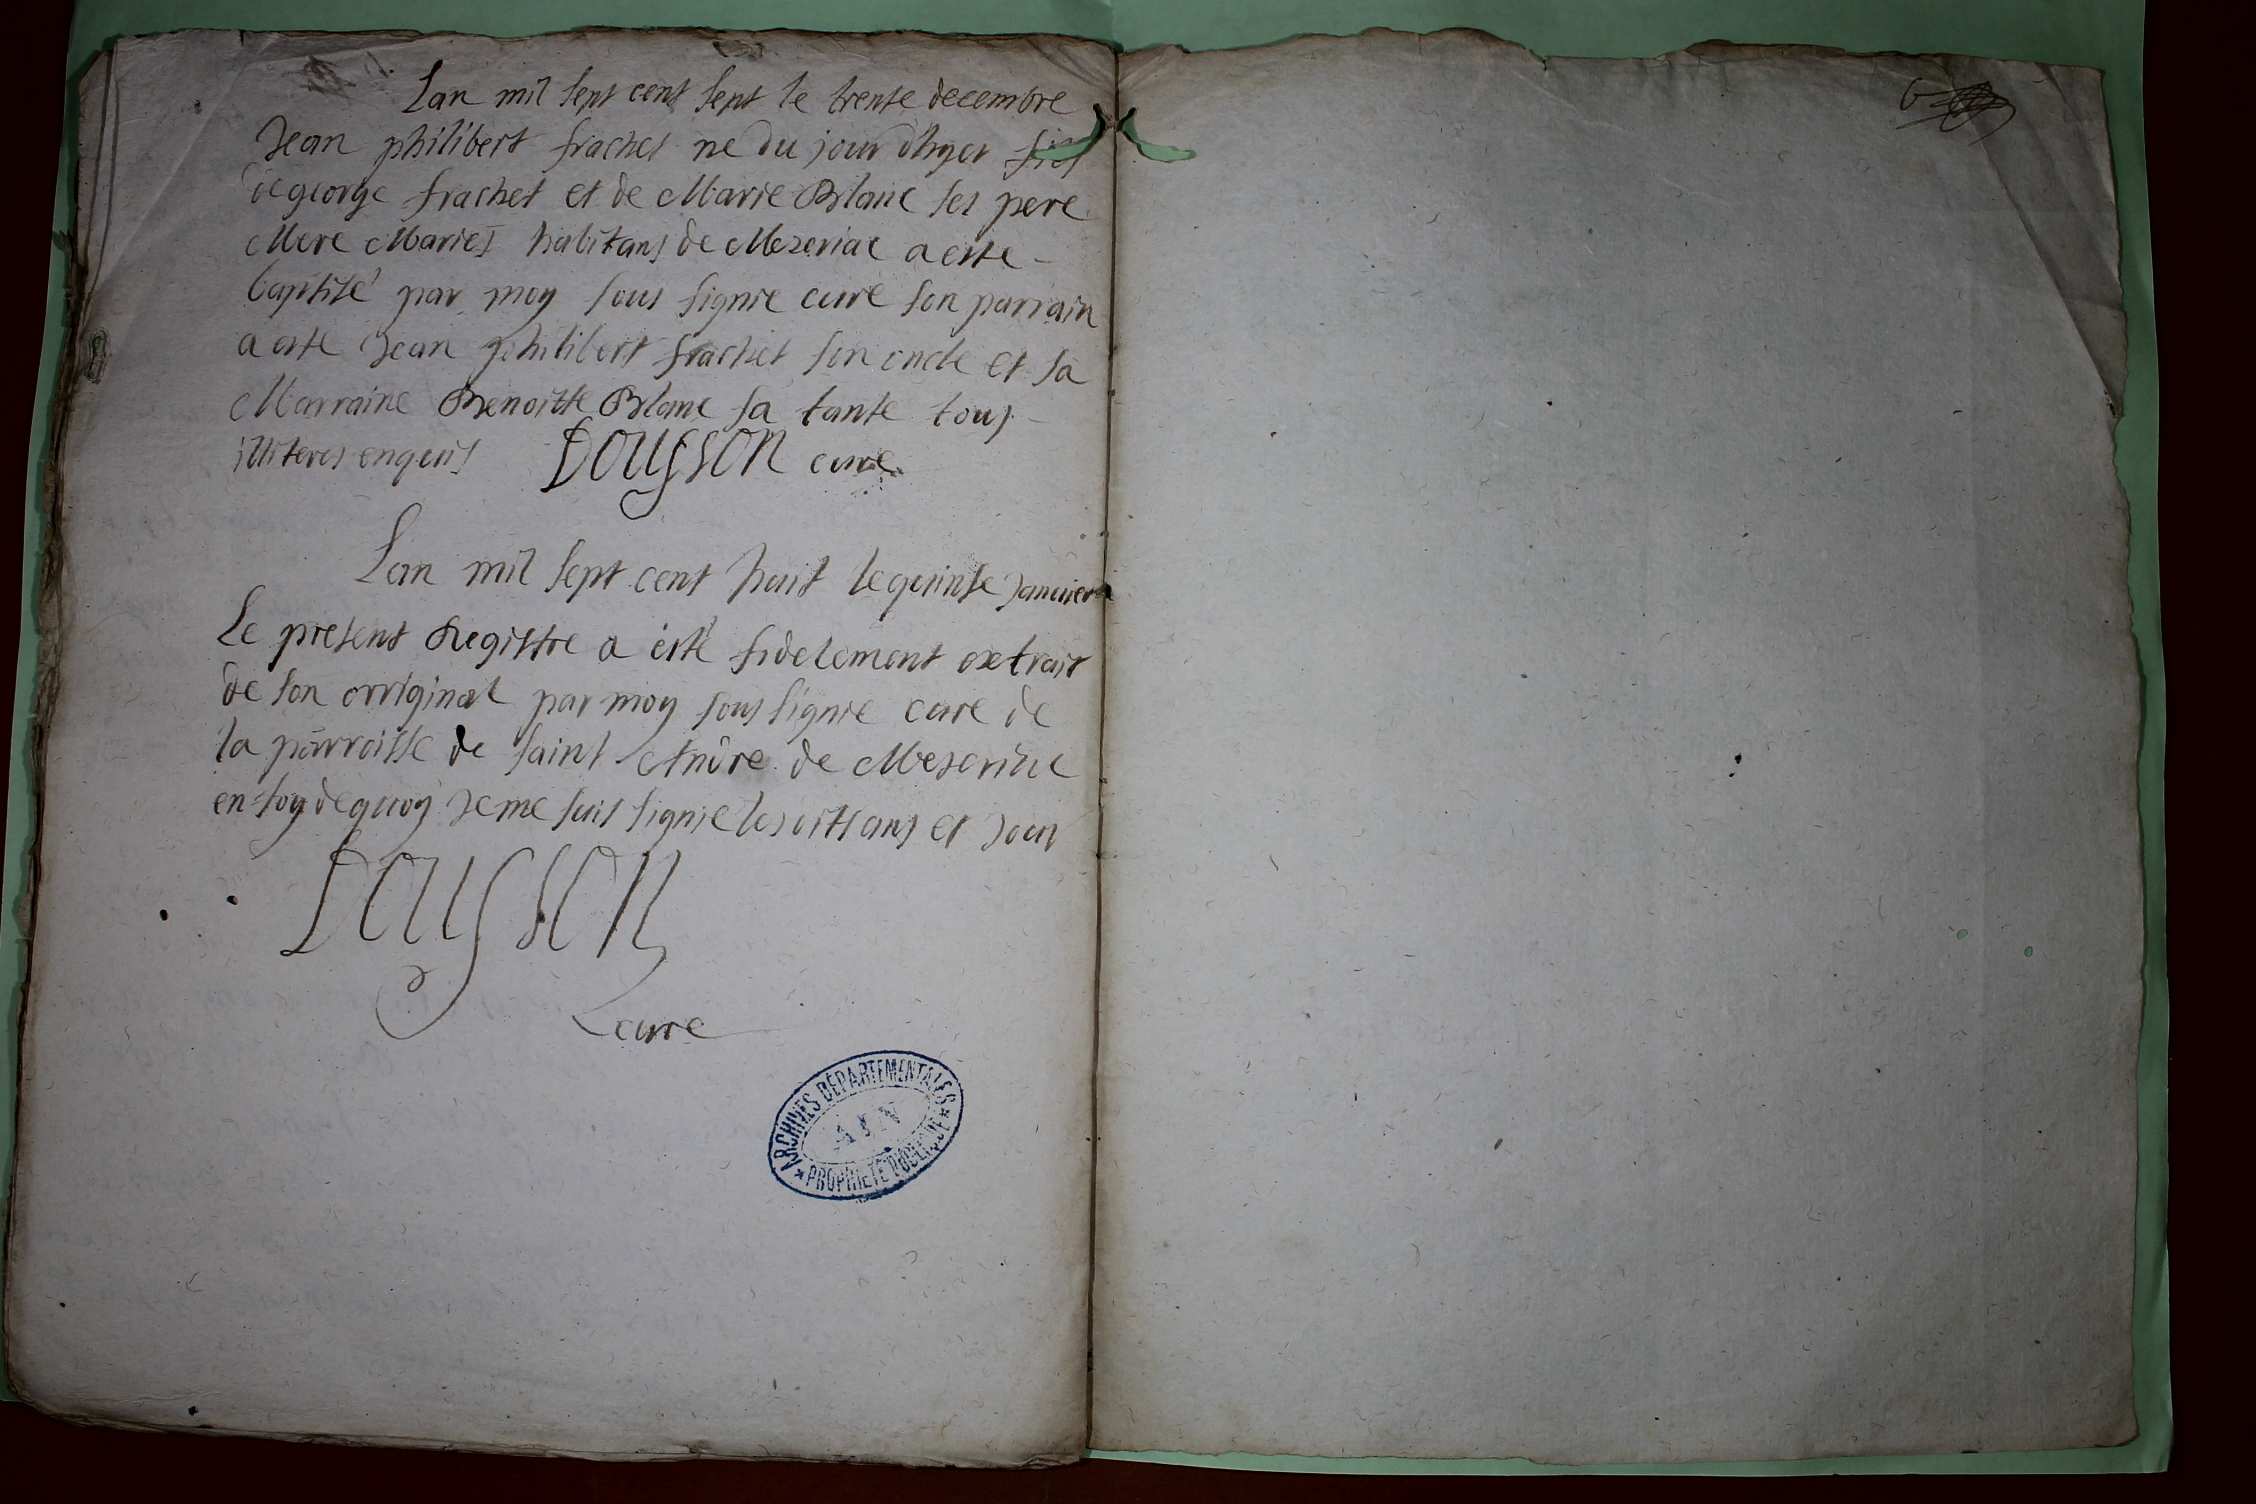 Lan mil sept cent sept le trente decembre
Jean philibert frachet ne du jour dhyer fils
de george frachet et de Marie Blanc ses pere
Mere Maries habitans de Mezeriac a esté
baptisé par moy sous signie curé son parrain
a esté Jean philibert frachet son oncle et sa
Marraine Benoitte Blanc sa tante tous
illiteres enquis Dousson curé
Lan mil sept cent huit le quinse Janvier
Le present Registre a esté fidelement extrait
de son original par moy sous signie curé de
la parroisse de saint Andre de Meseriac
en foy de quoy Je me suis signie les dits ans et Jour
Dousson
curé
ARCHIVES DÉPARTEMENTALES
AIN
PROPRIÉTÉ PUBLIQUE